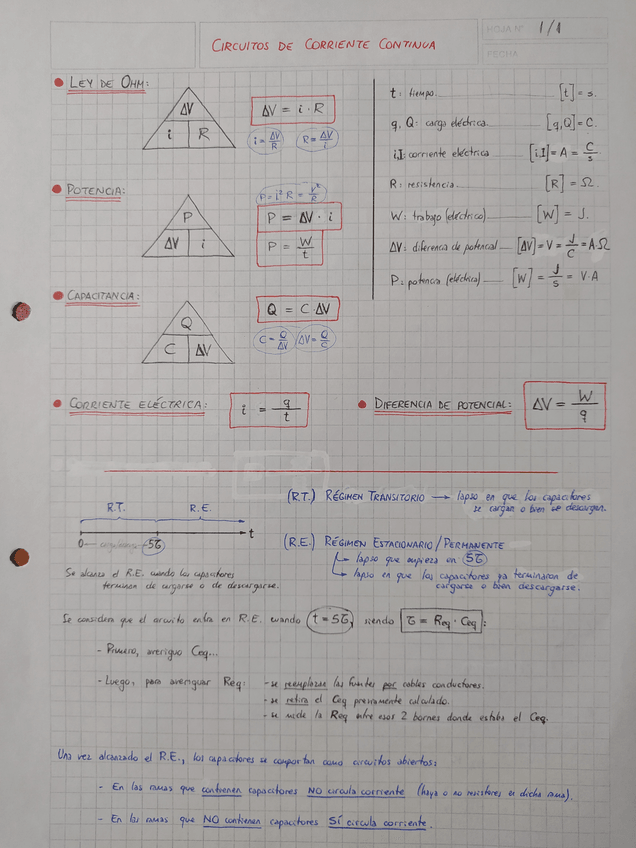 HOJA Nº 1/1
FECHA
CIRCUITOS DE CORRIENTE CONTINUA
• LEY DE OHM:
ΔV
i R
ΔV = i · R
i = ΔV/R R = ΔV/i
• POTENCIA:
P
ΔV i
P = i² R = V²/R
P = ΔV · i
P = W/t
• CAPACITANCIA:
Q
C ΔV
Q = C ΔV
C = Q/ΔV ΔV = Q/C
t: tiempo [t] = s.
q, Q: carga eléctrica [q,Q] = C.
i,I: corriente eléctrica [i,I] = A = C/s
R: resistencia [R] = Ω.
W: trabajo (eléctrico) [W] = J.
ΔV: diferencia de potencial [ΔV] = V = J/C = A.Ω
P: potencia (eléctrica) [W] = J/s = V·A
• CORRIENTE ELÉCTRICA: i = q/t
• DIFERENCIA DE POTENCIAL: ΔV = W/q
R.T. R.E.
0 5τ t
Se alcanza el R.E. cuando los capacitores
terminan de cargarse o de descargarse.
(R.T.) RÉGIMEN TRANSITORIO → lapso en que los capacitores
se cargan o bien se descargan.
(R.E.) RÉGIMEN ESTACIONARIO / PERMANENTE
→ lapso que empieza en 5τ
→ lapso en que los capacitores ya terminaron de
cargarse o bien descargarse.
Se considera que el circuito entra en R.E. cuando t = 5τ, siendo τ = Req · Ceq:
- Primero, averiguo Ceq...
- Luego, para averiguar Req: - se reemplazan las fuentes por cables conductores.
- se retira el Ceq previamente calculado.
- se mide la Req entre esos 2 bornes donde estaba el Ceq.
Una vez alcanzado el R.E., los capacitores se comportan como circuitos abiertos:
- En las ramas que contienen capacitores NO circula corriente (haya o no resistores en dicha rama).
- En las ramas que NO contienen capacitores SÍ circula corriente.